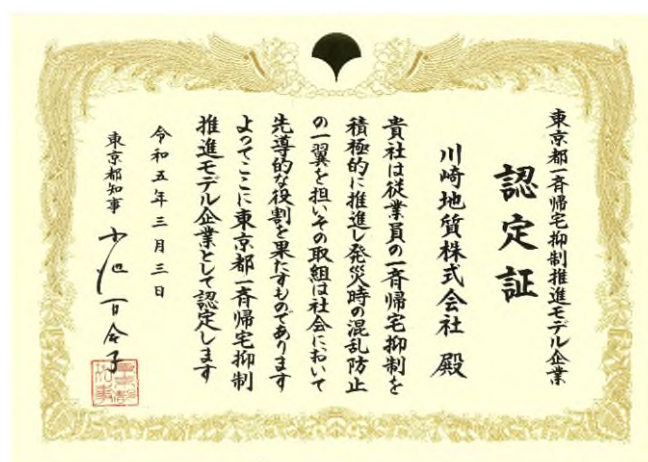 東京都一斉帰宅抑制推進モデル企業
認定証
川崎地質株式会社 殿
貴社は従業員の一斉帰宅抑制を
積極的に推進し発災時の混乱防止
の一翼を担いその取組は社会において
先導的な役割を果たすものであります
よってここに東京都一斉帰宅抑制
推進モデル企業として認定します
令和五年三月三日
東京都知事 小池百合子